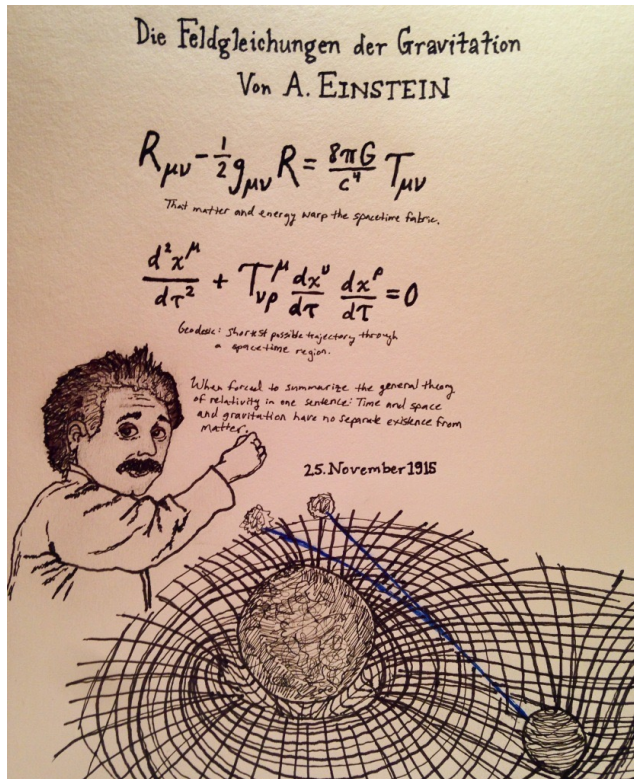 Die Feldgleichungen der Gravitation
Von A. EINSTEIN
R_μν - 1/2 g_μν R = 8πG/c⁴ T_μν
That matter and energy warp the spacetime fabric.
d²x^μ/dτ² + T^μ_νρ dx^ν/dτ dx^ρ/dτ = 0
Geodesic: Shortest possible trajectory through
a spacetime region.
When forced to summarize the general theory
of relativity in one sentence: Time and space
and gravitation have no separate existence from
matter.
25. November 1915